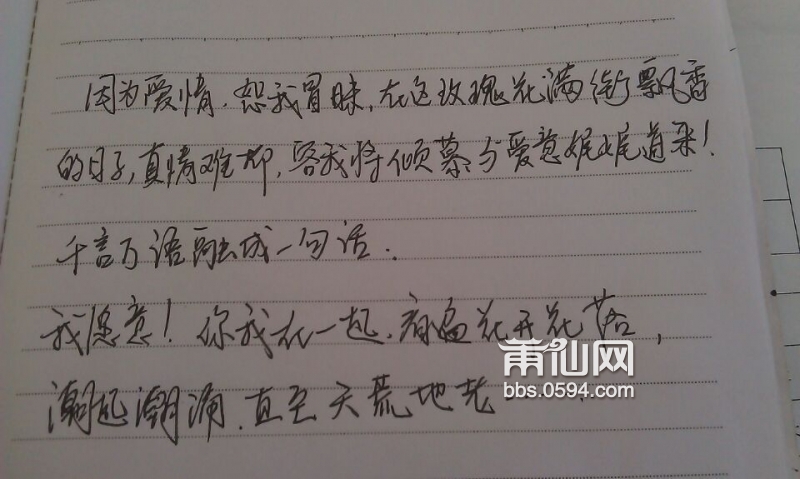 因为爱情,恕我冒昧,在这玫瑰花满街飘香
的日子,真情难抑,容我将倾慕与爱意娓娓道来!
千言万语融成一句话.
我愿意!你我在一起.看遍花开花落,
潮起潮涌.直至天荒地老……
莆仙网
bbs.0594.com